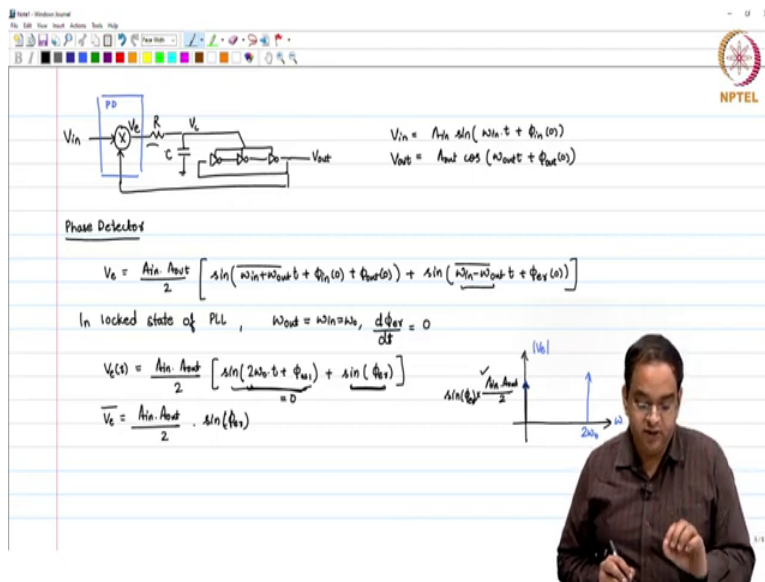 Note1 - Windows Journal
File Edit View Insert Actions Tools Help
B I
NPTEL
PD
Vin
X
Ve
R
Vc
C
Vout
Vin = Ain sin(ωin.t + ϕin(0))
Vout = Aout cos(ωout t + ϕout(0))
Phase Detector
Ve = Ain. Aout / 2 [ sin(ωin+ωout t + ϕin(0) + ϕout(0)) + sin(ωin-ωout t + ϕer(0)) ]
In locked state of PLL, ωout = ωin=ω₀, dϕer/dt = 0
Ve(t) = Ain. Aout / 2 [ sin(2ω₀.t + ) + sin(ϕer) ]
= 0
Ve = Ain. Aout / 2 . sin(ϕer)
|Ve|
sin(ϕer) × Ain. Aout / 2
2ω₀
ω